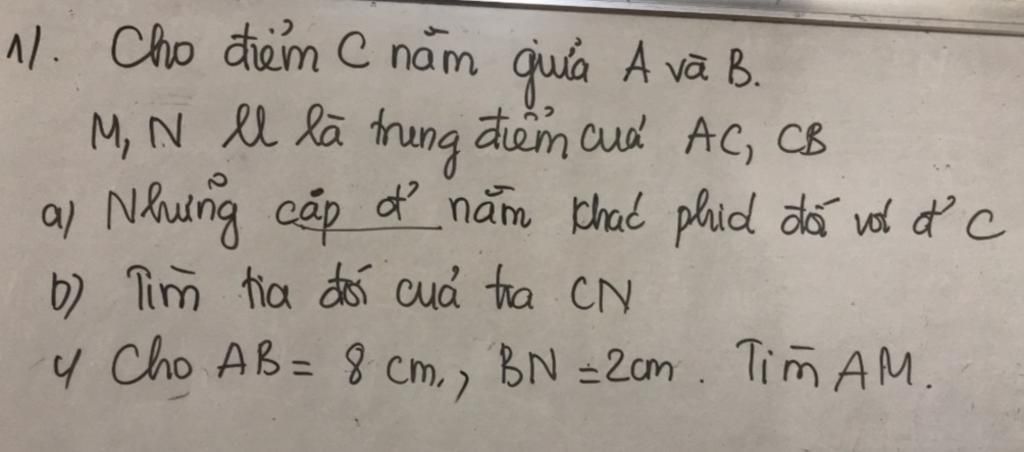 1/. Cho điểm C nằm giữa A và B.
M, N ll là trung điểm của AC, CB
a) Những cặp đ' nằm khác phía đối với đ' C
b) Tìm tia đối của tia CN
c/ Cho AB = 8 cm, BN = 2cm. Tìm AM.